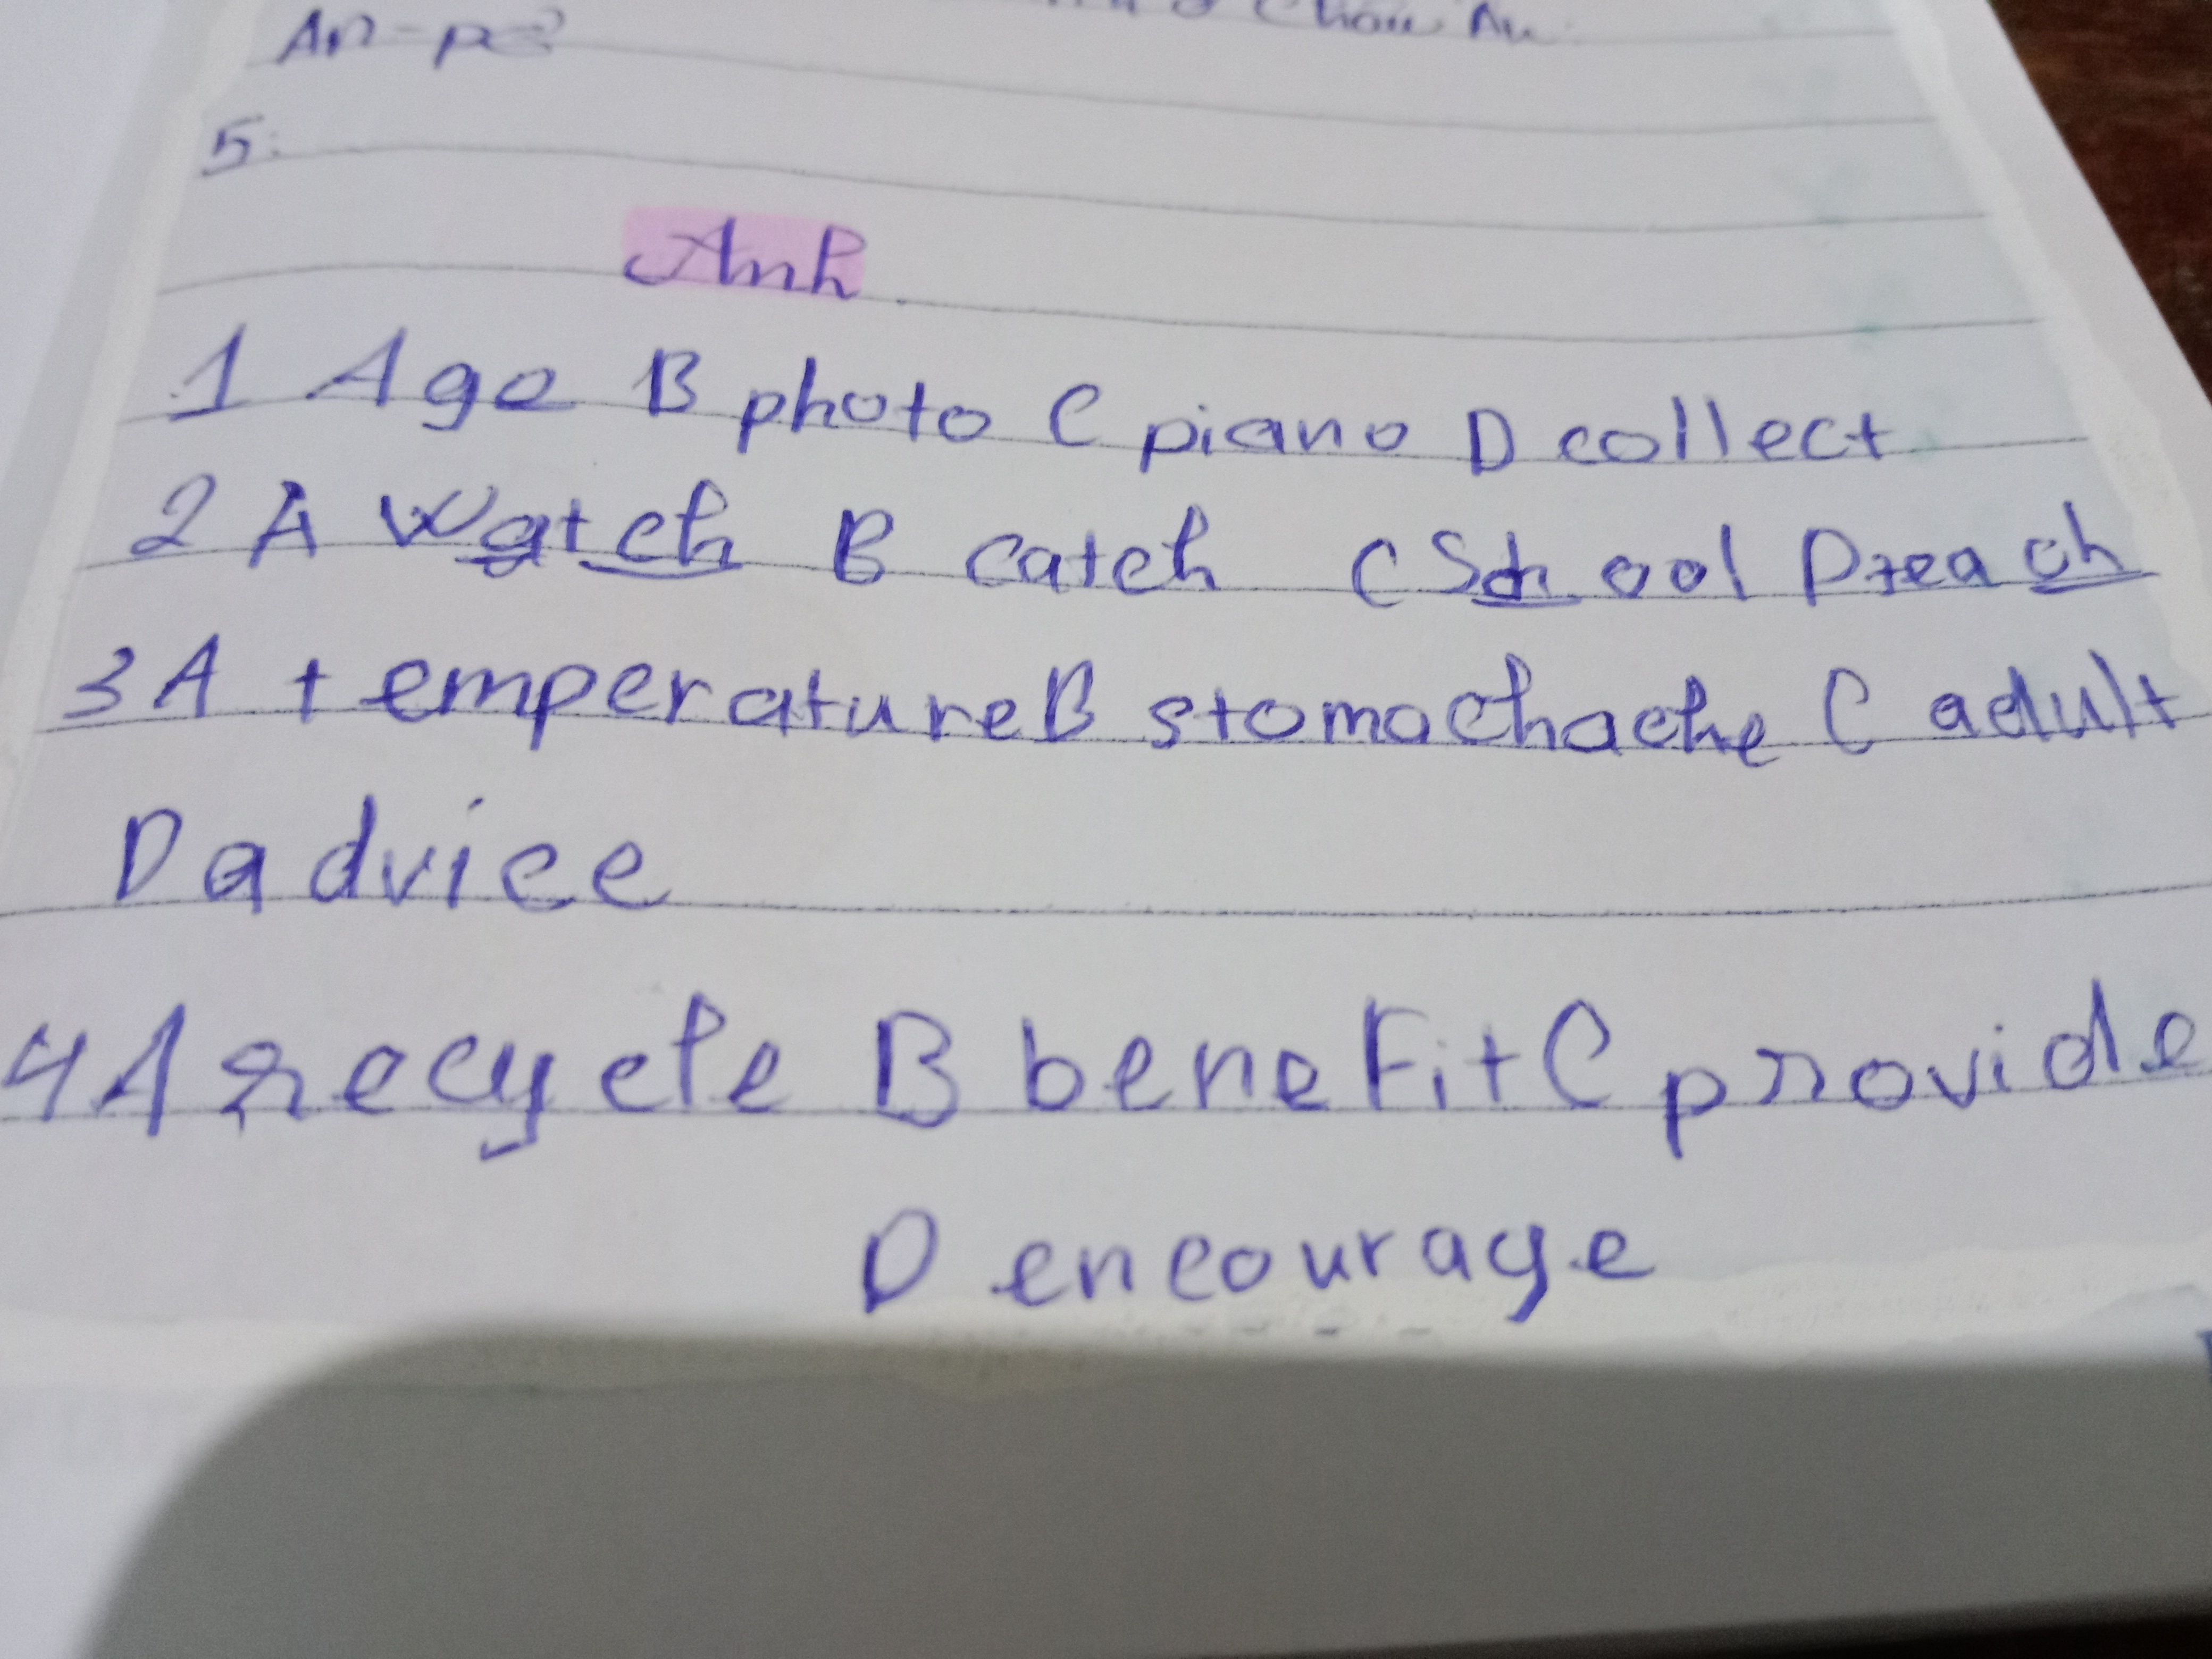 5:
Anh
1 A go B photo C piano D collect
2 A watch B catch C School D reach
3 A temperature B stomachache C adult
D advice
4 A recycle B benefit C provide
D encourage